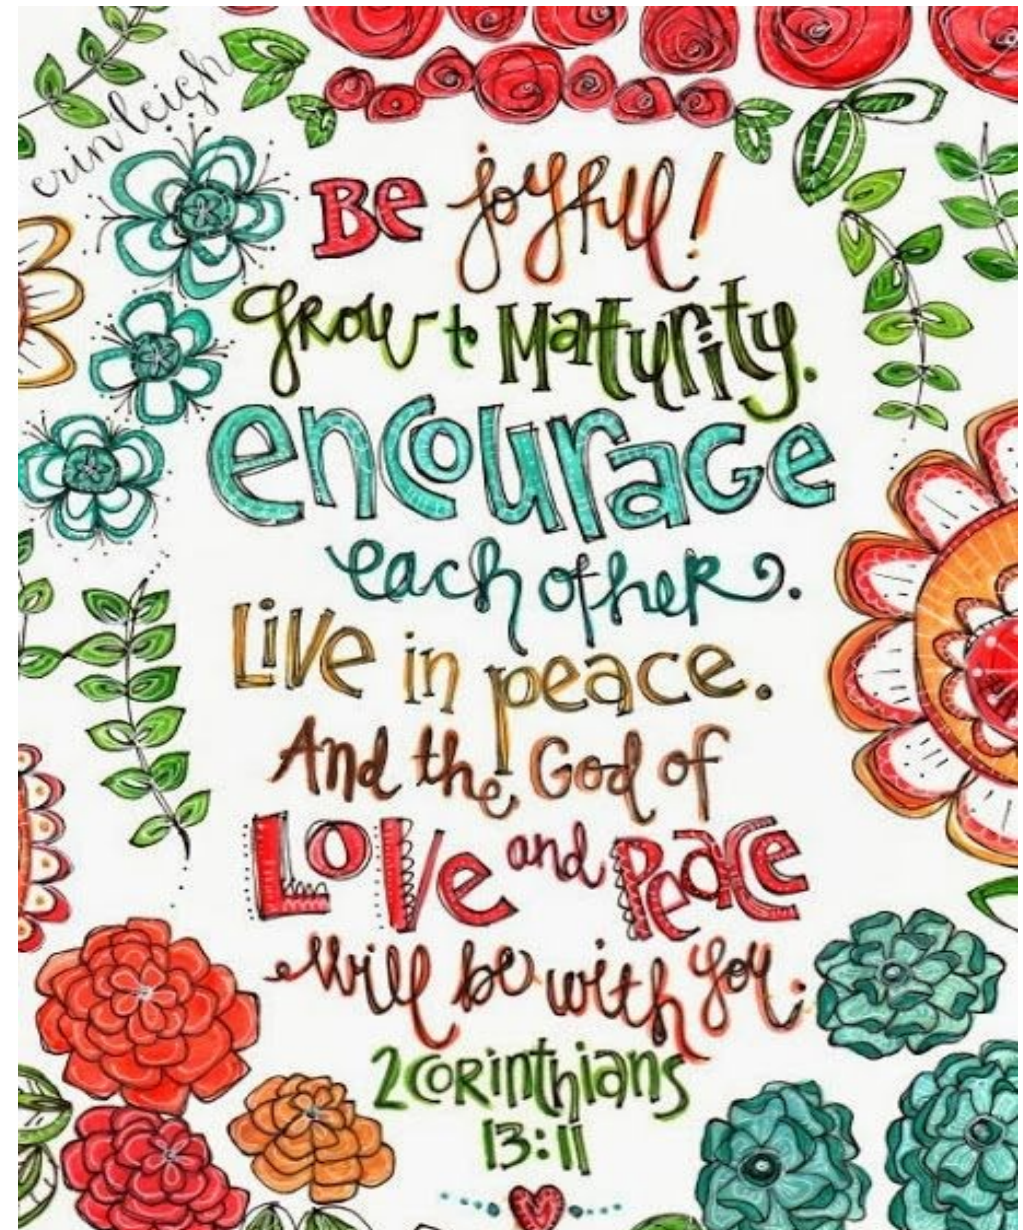 erin leigh
Be joyful!
Grow to Maturity.
encourage
each other.
Live in peace.
And the God of
Love and Peace
will be with you.
2 Corinthians
13:11